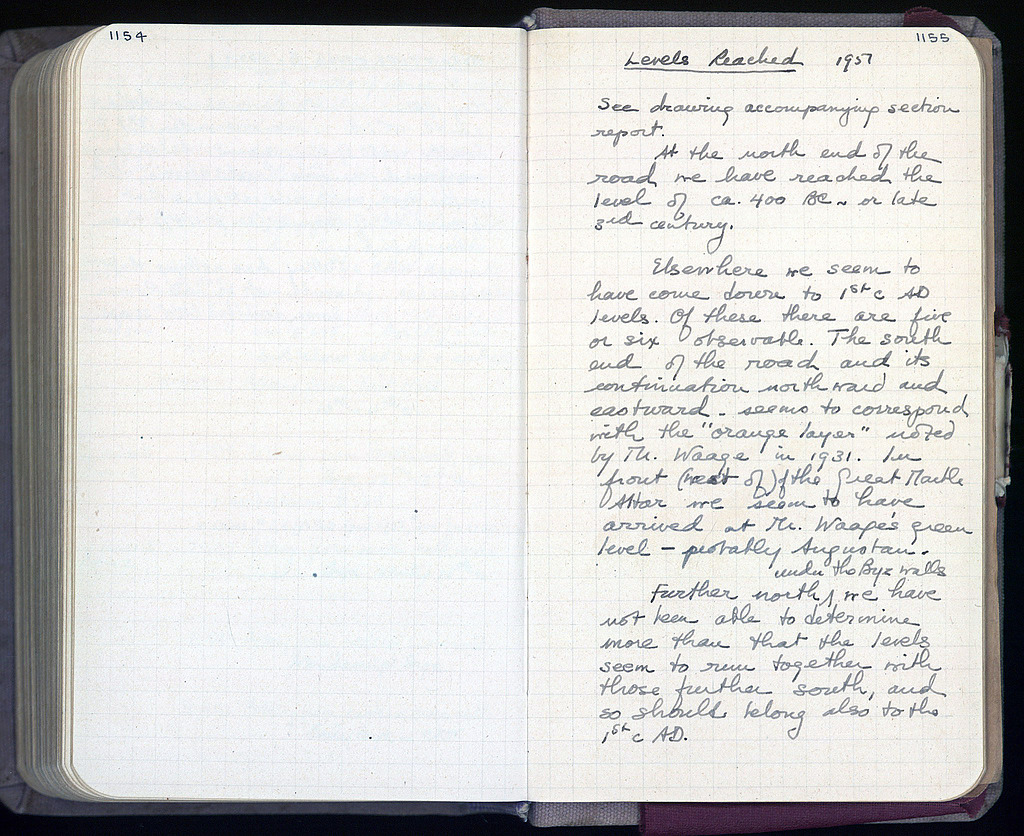 1154
1155
Levels Reached 1957
See drawing accompanying section
report.
At the north end of the
road we have reached the
level of ca. 400 BC ~ or late
3rd century.
Elsewhere we seem to
have come down to 1st c AD
levels. Of these there are five
or six observable. The south
end of the road and its
continuation northward and
eastward - seems to correspond
with the "orange layer" noted
by Mr. Waage in 1931. In
front (west of) of the Great Marble
Altar we seem to have
arrived at Mr. Waage's green
level - probably Augustan.
under the Byz walls
Further north, we have
not been able to determine
more than that the levels
seem to run together with
those further south, and
so should belong also to the
1st c AD.